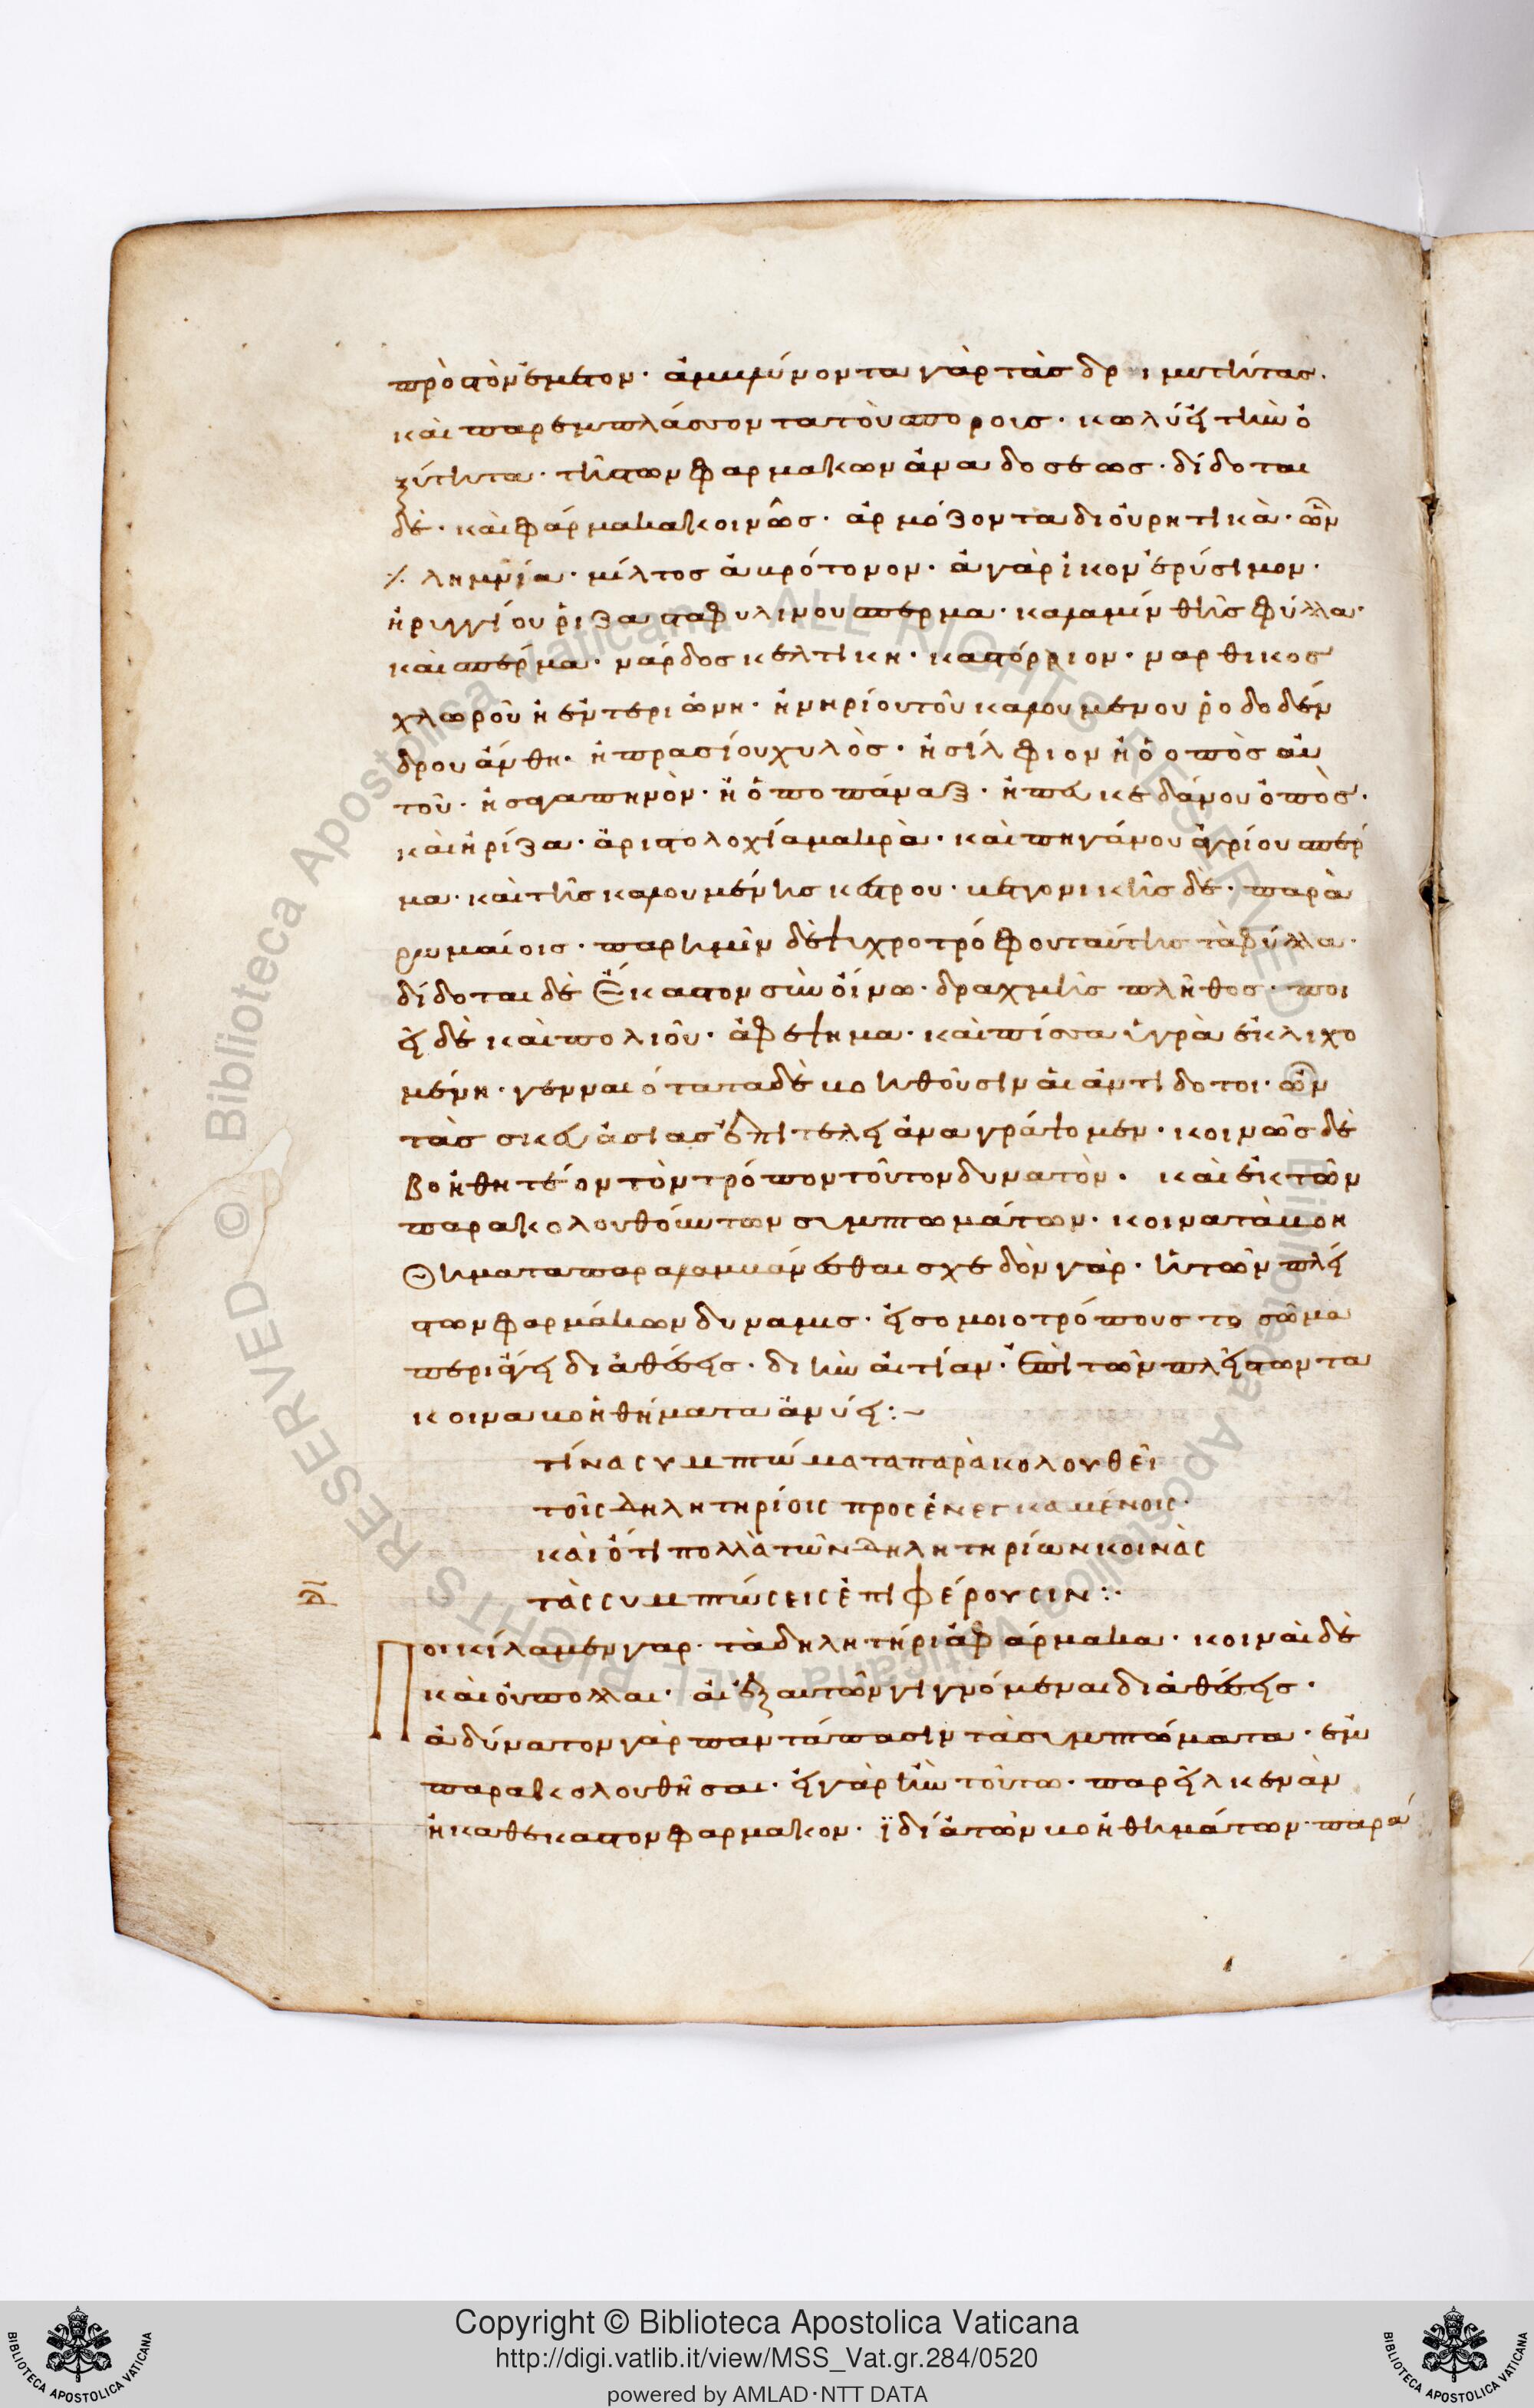 πρὸ τὸν ἔμετον· ἀμβλύνοντα γὰρ τὰσ δρ ιμυτήτασ.
καὶ παρεμπλάσσοντα τὸυσ ποροισ· κωλύει τὴν ὀ
ξύτητα· τῆσ τῶν φαρμακων ἀναδοσεωσ· δίδοται
δὲ· καὶ φάρμακα κοινῶσ· ἁρμόζοντα διὀυρητικὰ· ὧν
⁒ λημνία· μίλτοσ ἀκρότονον· ἀγὰρἰκον ἐρύσιμον·
ἠριγγίου ῥιζα σταφυλινου σπέρμα· καλαμίνθησ φύλλα·
καὶ σπέρμα· νάρδοσ κελτικη· καστόρριον· ναρθικοσ
χλωροῦ ἡ ἐντεριώνη· ἡ νηρίου τοῦ καλουμένου ῥοδοδέν
δρου ἄνθη· ἡ πρασίου χυλὸσ· ἡ σίλφιον ἡ ὁ οπὸσ αὐ
τοῦ· ἡ σγαπηνὸν· ἢ ὁποπάναξ· ἡ πευκεδάνου ὀπὸσ·
καὶ ἡ ρίζα· ἀριστολοχία μακρὰ· καὶ πηγάνου ἀγρίου σπέρ
μα· καὶ τῆσ καλουμένησ κέστρου· βετονικῆσ δὲ· παρὰ
ρωμαίοισ· παρ ημῖν δὲ ψυχροτρόφου ταύτησ τὰ φύλλα·
δίδοται δὲ ἕκαστον σὺν ὀίνω· δραχμῆσ πλῆθοσ· ποι
εῖ δὲ καὶ πολιοῦ· ἀφεψημα· καὶ πίσσα ὑγρὰ ἐκλιχο
μένη· γενναιότατα δὲ βοηθοῦσιν ἁι ἀντιδοτοι· ὧν
τὰσ σκευἀσιασ ἐπὶ τέλει ἀναγράψομεν· κοινῶσ δὲ
βοἡθητέον τὸν τρόπον τοῦτον δυνατὸν· καὶ ἐκ τῶν
παρακολουθόυντων συμπτωμάτων· κοινα τὰ βοη
θηματα παραλαμβάνεσθαι σχεδὸν γὰρ· ἡ τῶν πλεί
στων φαρμάκων δυναμισ· εἰσ ομοιοτρόπουσ το σῶμα
περιάγει διαθέσεισ· δι ἣν ἀιτίαν· ἐπὶ τῶν πλείστων τα
κοινα βοἡθήματα ἀνύει:~
τίνα ϲυμπτώματα παρὰκολουθεῖ
τοῖϲ δηλητηρίοιϲ προϲἐνεγκαμένοιϲ·
καὶ ὅτι πολλὰ τῶν δηλητηρίων κοινὰϲ
τὰϲ ϲυμπτώϲειϲ ἐπιφέρουϲιν:·
Ποικίλα μέν γαρ· τὰ δηλητήρια φάρμακα· κοιναὶ δὲ
καὶ ὀυ πολλαι· ἁι ἐξ αυτῶν γιγνόμεναι διαθέσεισ·
ἀδύνατον γὰρ παντάπασιν τὰ συμπτώματα· ἐν
παρακολουθῆσαι· εἰ γὰρ ἦν τοῦτο· παρεῖλκεν ἀν
ἡ καθέκαστον φαρμακον· ϊδία τῶν βοἡθημάτων· παρά
Copyright © Biblioteca Apostolica Vaticana
http://digi.vatlib.it/view/MSS_Vat.gr.284/0520
powered by AMLAD·NTT DATA